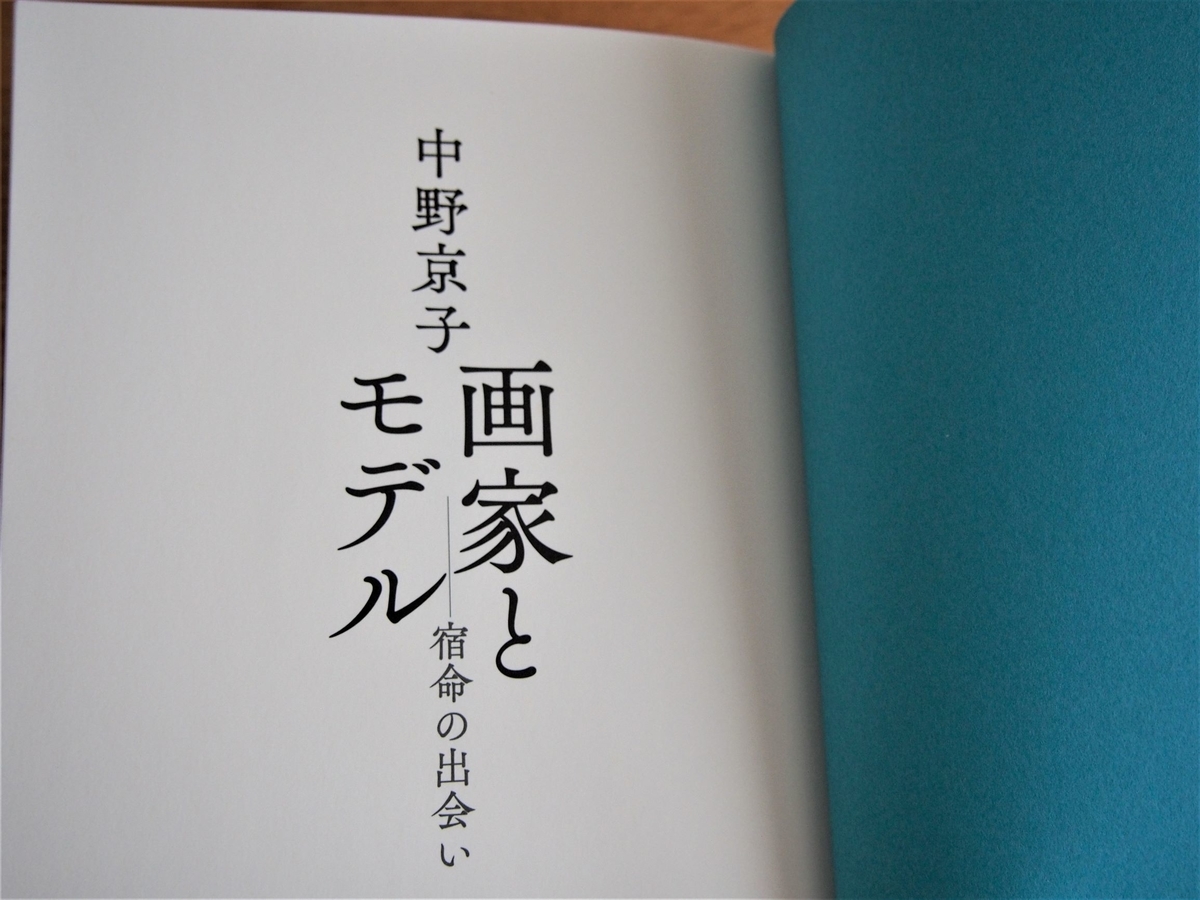 中野京子
画家と
モデル
―宿命の出会い